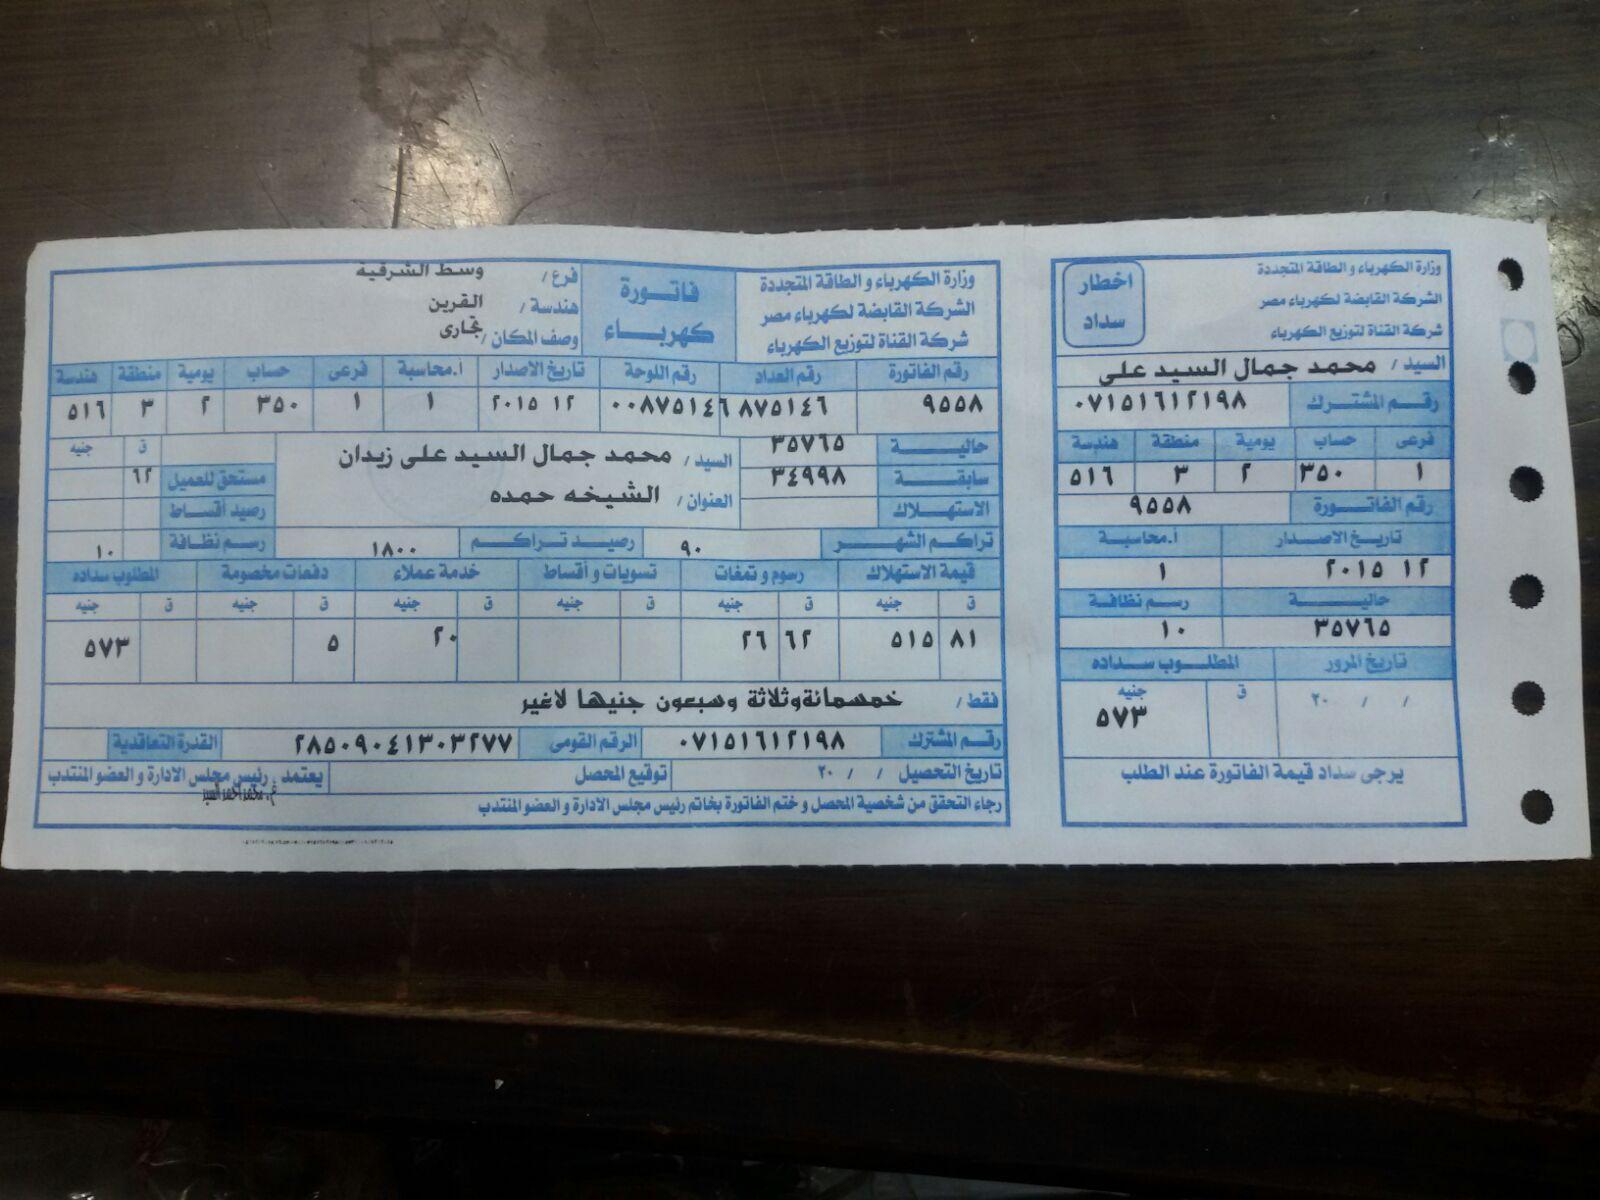 وزارة الكهرباء و الطاقة المتجددة
الشركة القابضة لكهرباء مصر
شركة القناة لتوزيع الكهرباء
اخطار سداد
السيد / محمد جمال السيد على
رقم المشترك ٠٧١٥١٦١٢١٩٨
فرعى حساب يومية منطقة هندسة
١ ٣٥٠ ٢ ٣ ٥١٦
رقم الفاتورة ٩٥٥٨
تاريخ الاصدار أ.محاسبة
١٢ ٢٠١٥ ١
حالية رسم نظافة
٣٥٧٦٥ ١٠
تاريخ المرور المطلوب سداده
/ / ٢٠ ق جنيه
٥٧٣
يرجى سداد قيمة الفاتورة عند الطلب
وزارة الكهرباء و الطاقة المتجددة
الشركة القابضة لكهرباء مصر
شركة القناة لتوزيع الكهرباء
فاتورة كهرباء
فرع / وسط الشرقية
هندسة / القرين
وصف المكان / تجارى
رقم الفاتورة رقم العداد رقم اللوحة تاريخ الاصدار أ.محاسبة فرعى حساب يومية منطقة هندسة
٩٥٥٨ ٨٧٥١٤٦ ٠٠٨٧٥١٤٦ ١٢ ٢٠١٥ ١ ١ ٣٥٠ ٢ ٣ ٥١٦
حالية ٣٥٧٦٥ السيد / محمد جمال السيد على زيدان ق جنيه
سابقة ٣٤٩٩٨ العنوان / الشيخه حمده مستحق للعميل ٦٢
الاستهلاك رصيد أقساط
تراكم الشهر ٩٠ رصيد تراكم ١٨٠٠ رسم نظافة ١٠
قيمة الاستهلاك رسوم و تمغات تسويات و أقساط خدمة عملاء دفعات مخصومة المطلوب سداده
ق جنيه ق جنيه ق جنيه ق جنيه ق جنيه ق جنيه
٨١ ٥١٥ ٦٢ ٢٦ ٢٠ ٥ ٥٧٣
فقط / خمسمائة وثلاثة وسبعون جنيها لاغير
رقم المشترك ٠٧١٥١٦١٢١٩٨ الرقم القومى ٢٨٥٠٩٠٤١٣٠٣٢٧٧ القدرة التعاقدية
تاريخ التحصيل / / ٢٠ توقيع المحصل يعتمد رئيس مجلس الادارة و العضو المنتدب
رجاء التحقق من شخصية المحصل و ختم الفاتورة بخاتم رئيس مجلس الادارة و العضو المنتدب